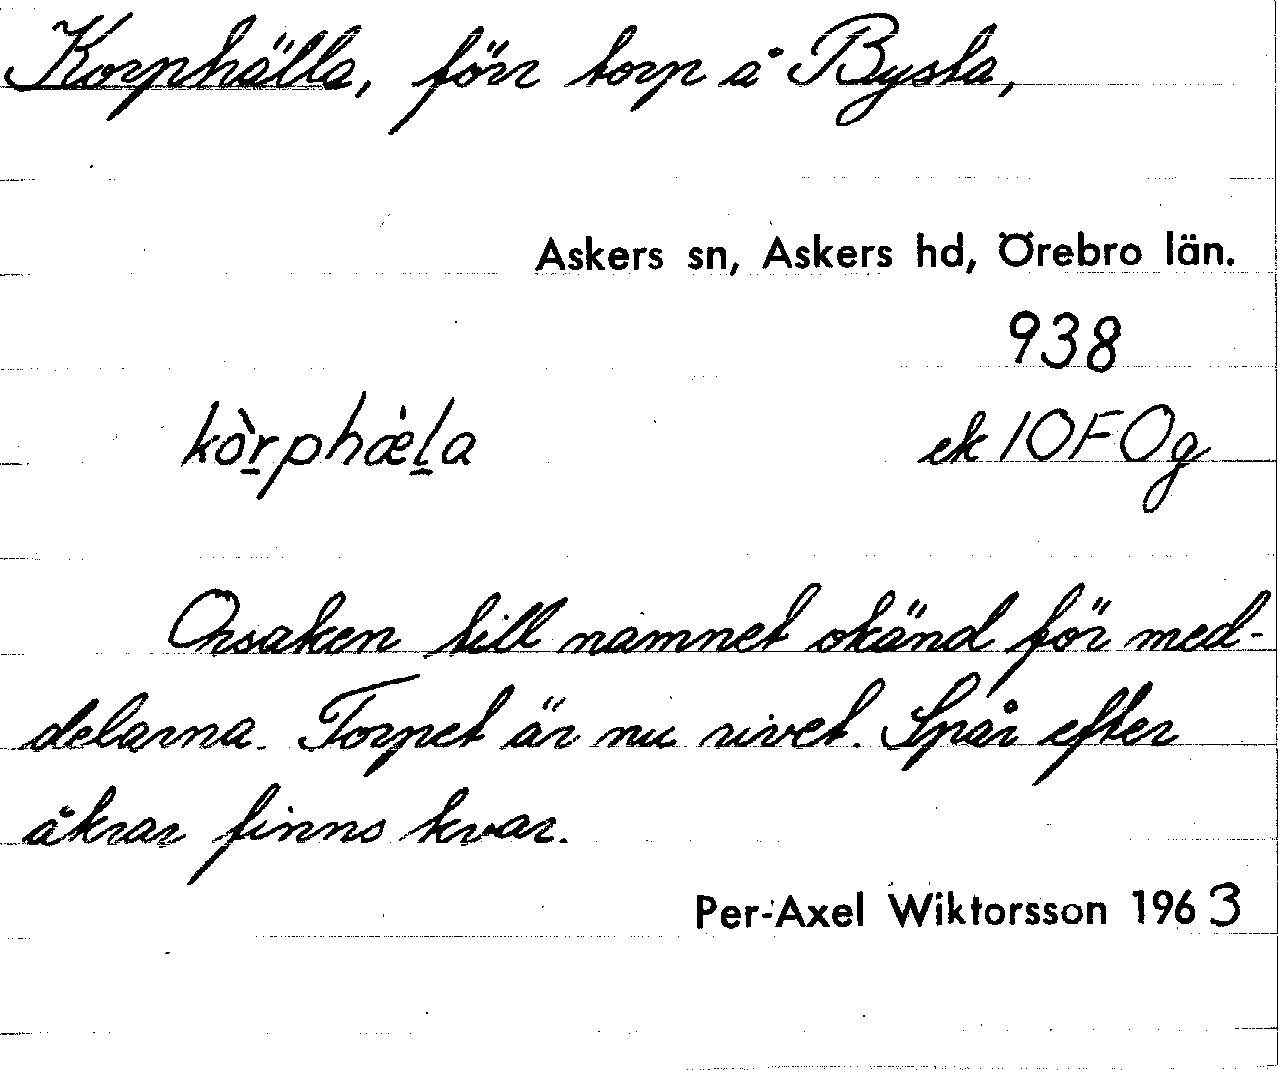 Korphälla, förr torp å Bysta,
Askers sn, Askers hd, Örebro län.
938
kòr̲phæ̀l̲a
ek 10F0g
Orsaken till namnet okänd för med-
delarna. Torpet är nu rivet. Spår efter
åkrar finns kvar.
Per-Axel Wiktorsson 1963